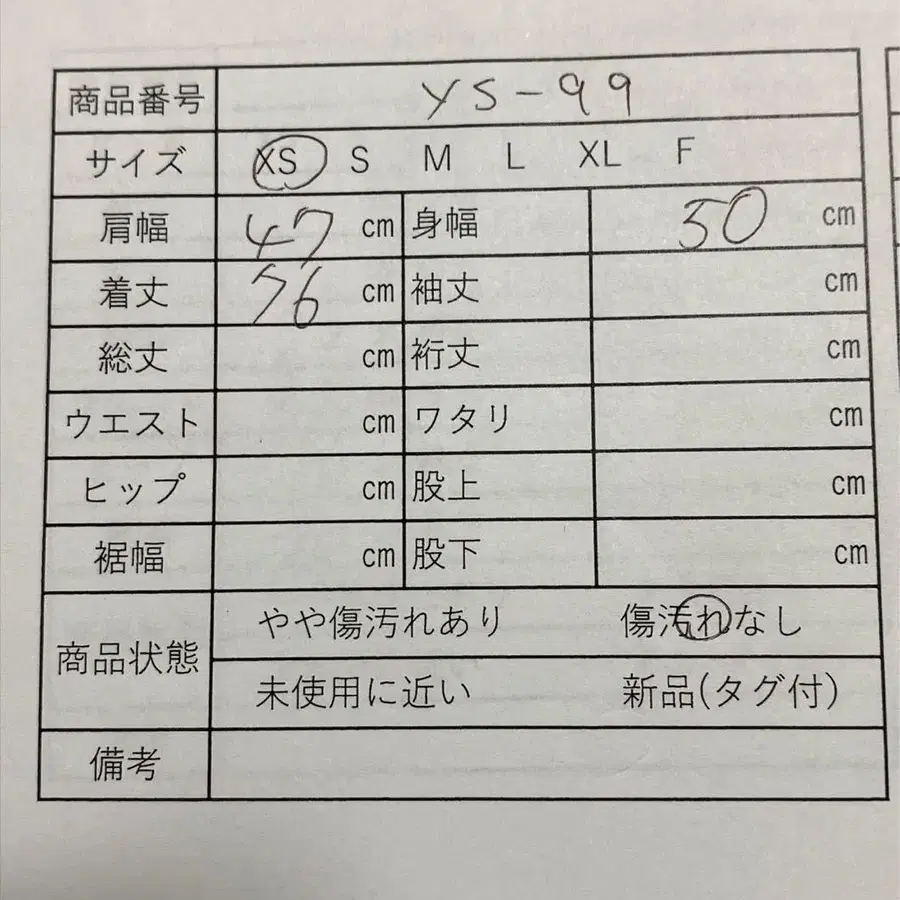 商品番号 YS-99
サイズ XS S M L XL F
肩幅 47 cm 身幅 50 cm
着丈 76 cm 袖丈 cm
総丈 cm 裄丈 cm
ウエスト cm ワタリ cm
ヒップ cm 股上 cm
裾幅 cm 股下 cm
商品状態 やや傷汚れあり 傷汚れなし
未使用に近い 新品(タグ付)
備考